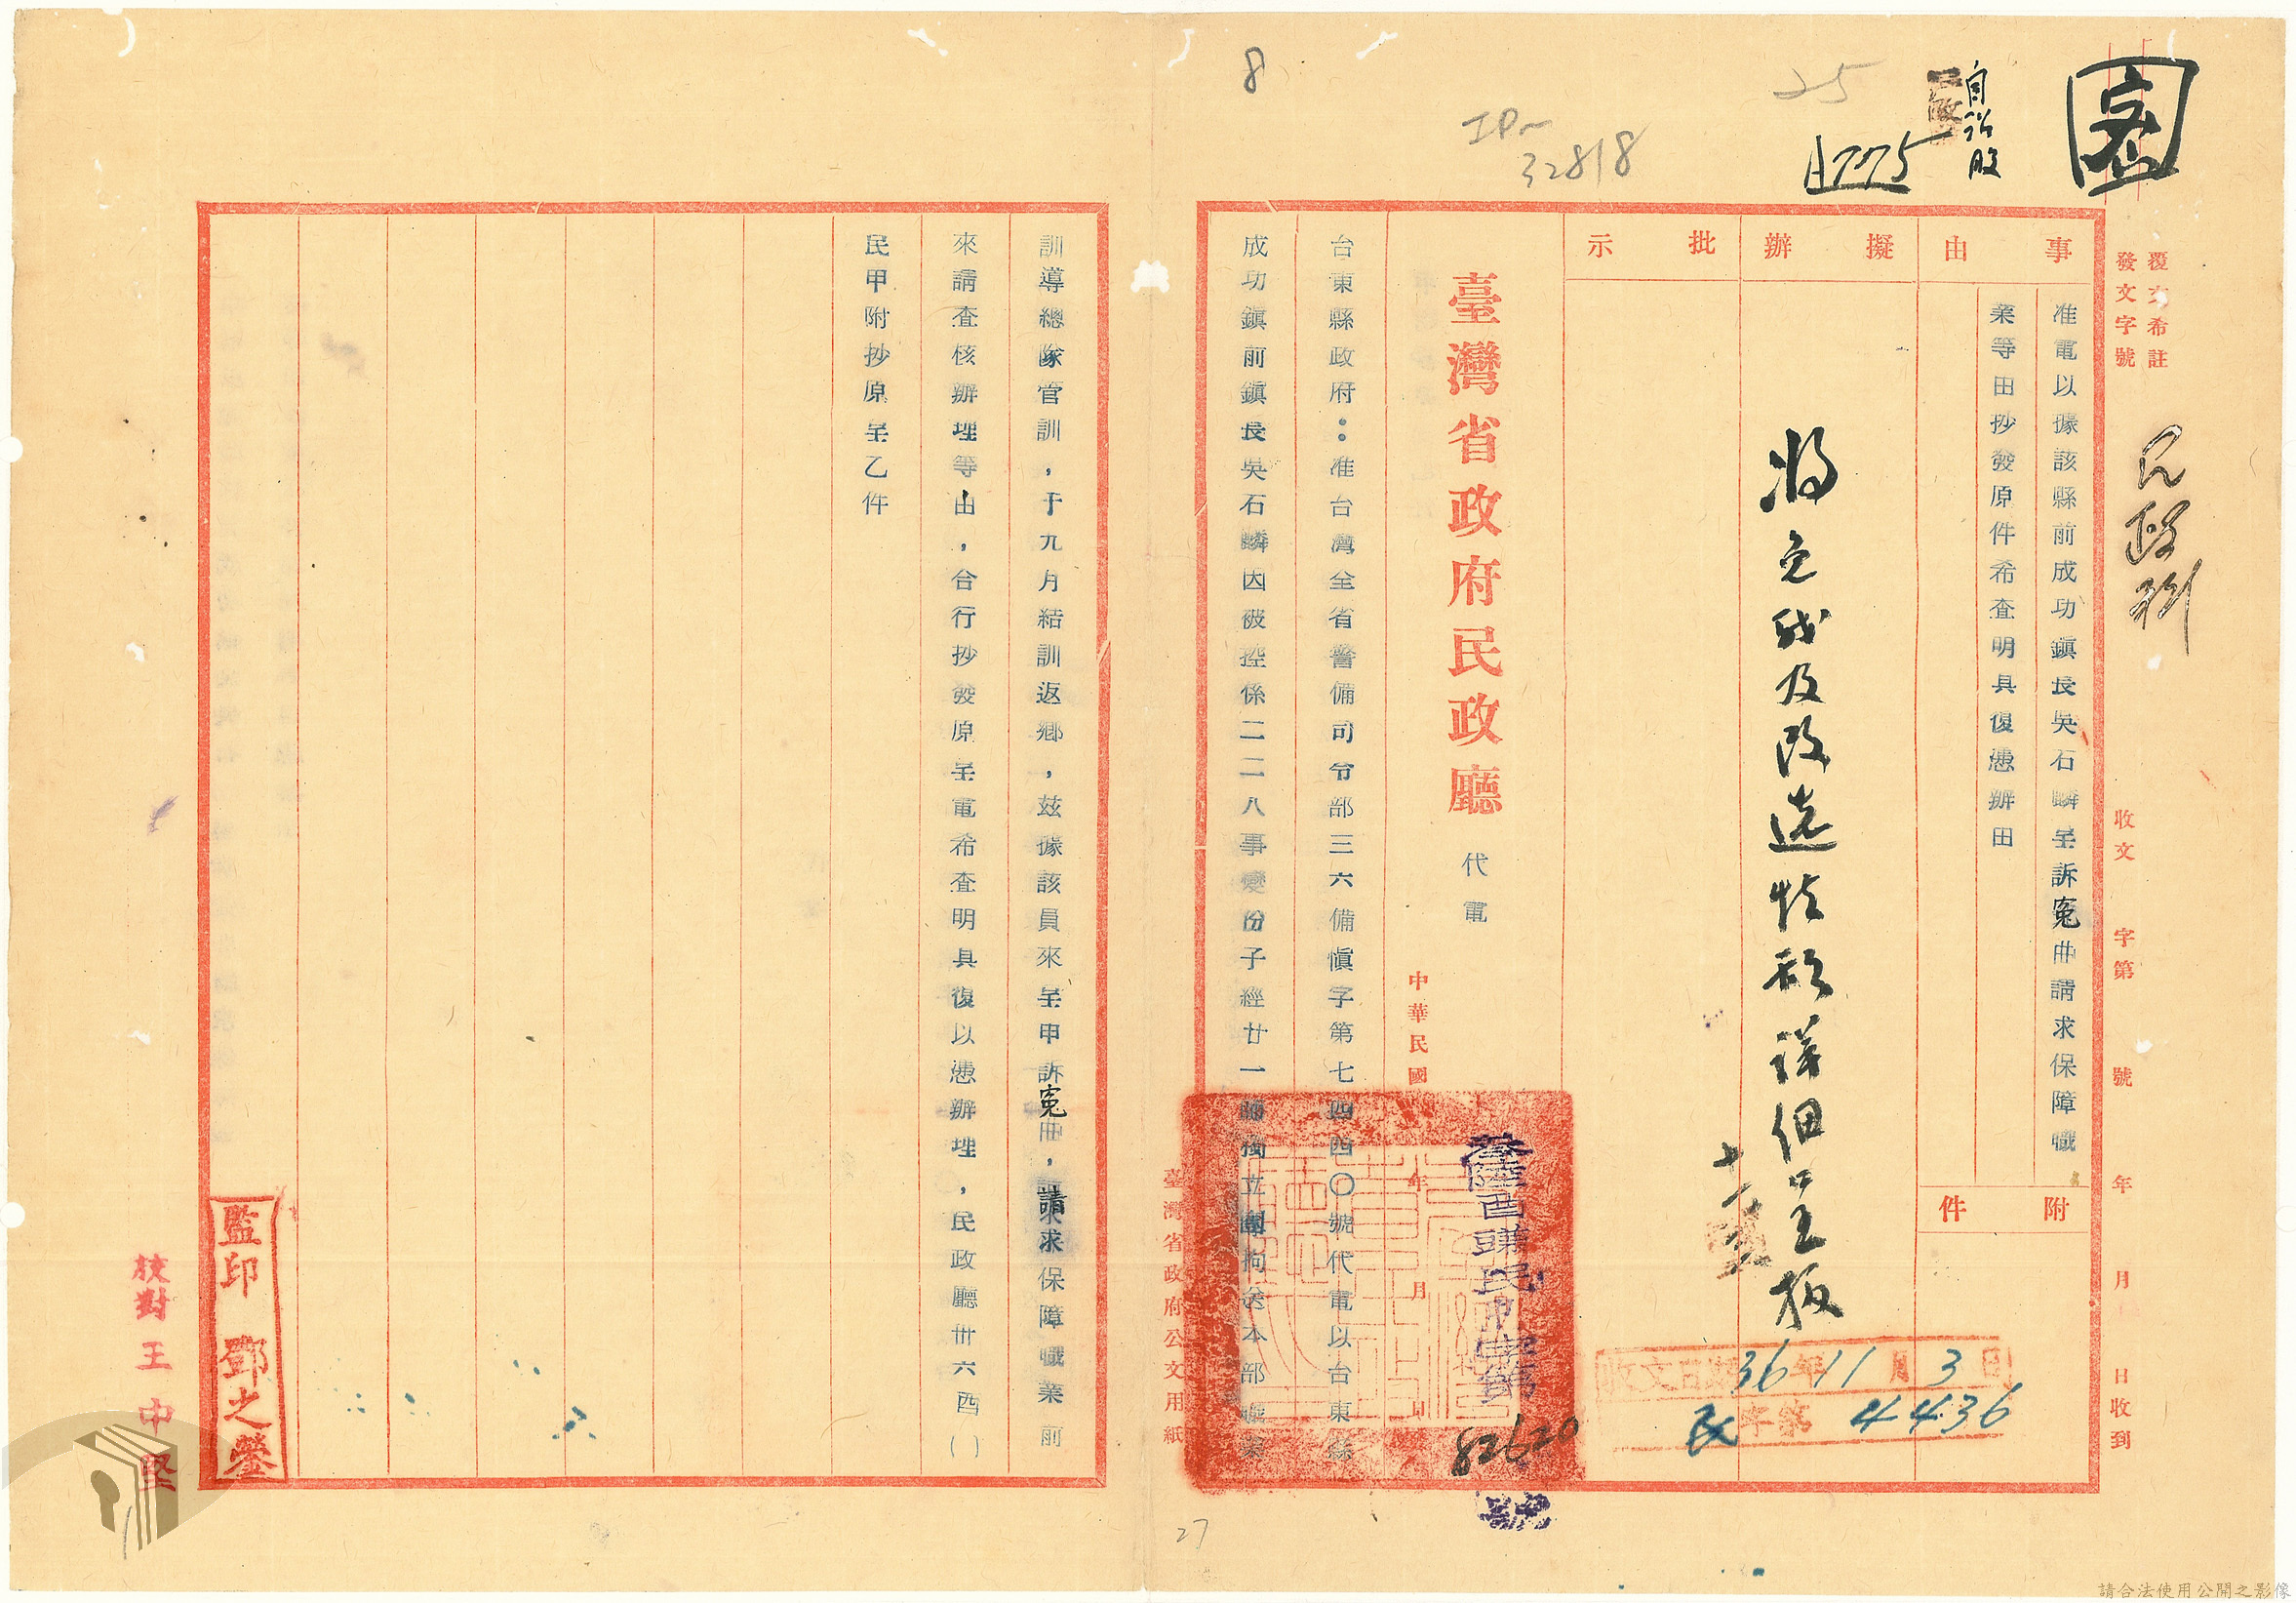 密
自治股
775
25
IPn
32818
8
覆文希註
發文字號
民政科
收文 字第 號 年 月 日收到
事由
准電以據該縣前成功鎮長吳石麟呈訴寃曲請求保障職
業等由抄發原件希查明具復憑辦由
附件
擬辦
將免職及改選情形詳細呈報
批示
收文日期36年11月3日
民字第4436
臺灣省政府民政廳
代電
中華民國 年 月 日
82620
台東縣政府：准台灣全省警備司令部三六備愼字第七四四〇號代電以台東縣
成功鎮前鎮長吳石麟因被控係二二八事變份子經廿一師獨立團拘送本部職業
臺灣省政府公文用紙
27
訓導總隊管訓，于九月結訓返鄉，玆據該員來呈申訴寃曲，請求保障職業前
來請查核辦理等由，合行抄發原呈電希查明具復以憑辦理，民政廳卅六酉（）
民甲附抄原呈乙件
監印 鄧之鎣
校對 王中堅
請合法使用公開之影像